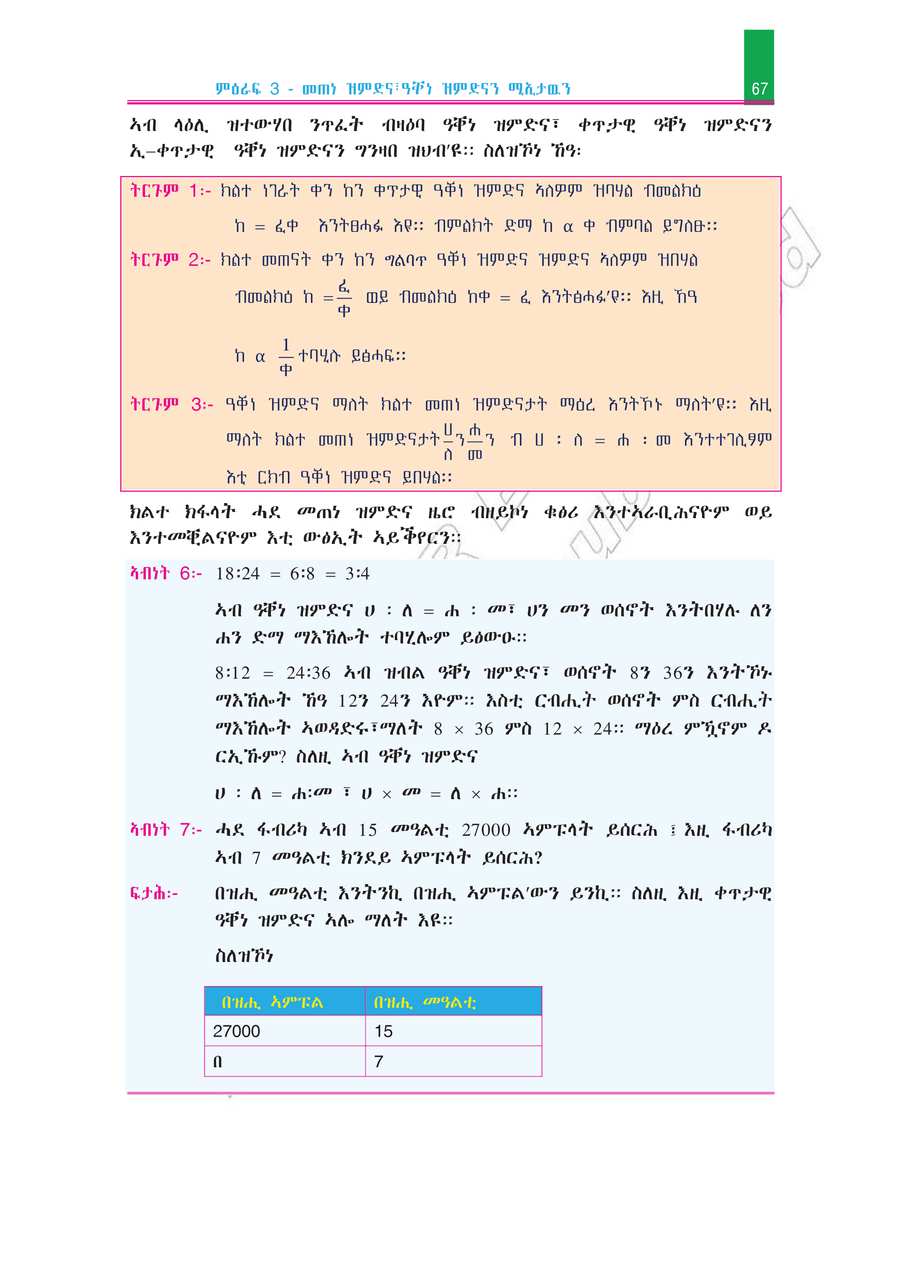 ምዕራፍ 3 - መጠነ ዝምድና፡ዓቐነ ዝምድናን ሚእታዊን 67
ኣብ ላዕሊ ዝተውሃበ ንጥፈት ብዛዕባ ዓቐነ ዝምድና፣ ቀጥታዊ ዓቐነ ዝምድናን
ኢ–ቀጥታዊ ዓቐነ ዝምድናን ግንዛበ ዝህብ'ዩ፡፡ ስለዝኾነ ኸዓ፡
ትርጉም 1፡- ክልተ ነገራት ቀን ከን ቀጥታዊ ዓቐነ ዝምድና ኣለዎም ዝባሃል ብመልክዕ
ከ = ፈቀ እንትፅሓፉ እዩ፡፡ ብምልክት ድማ ከ α ቀ ብምባል ይግለፁ፡፡
ትርጉም 2፡- ክልተ መጠናት ቀን ከን ግልባጥ ዓቐነ ዝምድና ዝምድና ኣለዎም ዝበሃል
ብመልክዕ ከ = ፈ/ቀ ወይ ብመልክዕ ከቀ = ፈ እንትፅሓፉ'ዩ፡፡ እዚ ኸዓ
ከ α 1/ቀ ተባሂሉ ይፅሓፍ፡፡
ትርጉም 3፡- ዓቐነ ዝምድና ማለት ክልተ መጠነ ዝምድናታት ማዕረ እንትኾኑ ማለት'ዩ፡፡ እዚ
ማለት ክልተ መጠነ ዝምድናታት ሀ/ለ ን ሐ/መ ን ብ ሀ : ለ = ሐ : መ እንተተገሊፆም
እቲ ርክብ ዓቐነ ዝምድና ይበሃል፡፡
ክልተ ክፋላት ሓደ መጠነ ዝምድና ዜሮ ብዘይኮነ ቁፅሪ እንተኣራቢሕናዮም ወይ
እንተመቒልናዮም እቲ ውፅኢት ኣይቕየርን፡፡
ኣብነት 6፡- 18:24 = 6:8 = 3:4
ኣብ ዓቐነ ዝምድና ሀ : ለ = ሐ : መ፣ ሀን መን ወሰኖት እንትበሃሉ ለን
ሐን ድማ ማእኸሎት ተባሂሎም ይፅውዑ፡፡
8:12 = 24:36 ኣብ ዝብል ዓቐነ ዝምድና፣ ወሰኖት 8ን 36ን እንትኾኑ
ማእኸሎት ኸዓ 12ን 24ን እዮም፡፡ እስቲ ርብሒት ወሰኖት ምስ ርብሒት
ማእኸሎት ኣወዳድሩ፣ማለት 8 × 36 ምስ 12 × 24፡፡ ማዕረ ምዃኖም ዶ
ርኢኹም? ስለዚ ኣብ ዓቐነ ዝምድና
ሀ : ለ = ሐ:መ ፣ ሀ × መ = ለ × ሐ፡፡
ኣብነት 7፡- ሓደ ፋብሪካ ኣብ 15 መዓልቲ 27000 ኣምፑላት ይሰርሕ ፤ እዚ ፋብሪካ
ኣብ 7 መዓልቲ ክንደይ ኣምፑላት ይሰርሕ?
ፍታሕ፡- በዝሒ መዓልቲ እንትንኪ በዝሒ ኣምፑል'ውን ይንኪ፡፡ ስለዚ እዚ ቀጥታዊ
ዓቐነ ዝምድና ኣሎ ማለት እዩ፡፡
ስለዝኾነ
በዝሒ ኣምፑል በዝሒ መዓልቲ
27000 15
በ 7